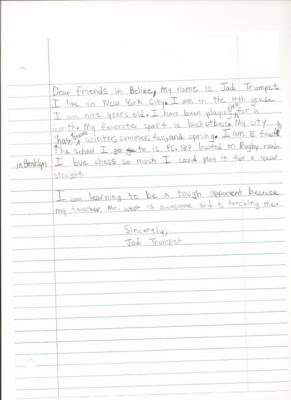 Dear friends in Belize, my name is Jadi Trumpet
I live in New York city. I am in the 4th grade
I am nine years old. I have been playing chess for a
month. My favorite sport is basketball. My city
has winter, summer, fall, and spring. I am 5 feet
The School I go to is P.S. 139 located on Rugby road
in Brooklyn
I love chess so much I could play it for a year
straight.
I am learning to be a tough opponent because
my teacher Mr. West is awesome and is teaching me.
Sincerely,
Jadi Trumpet